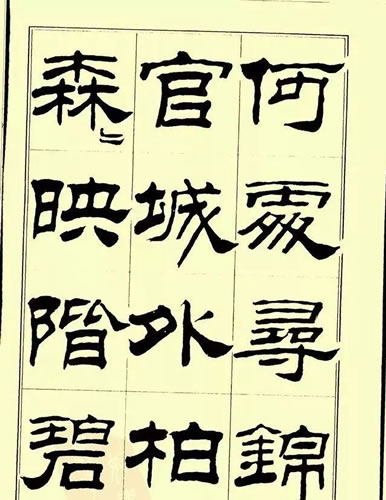 何處尋錦
官城外柏
森々映階碧